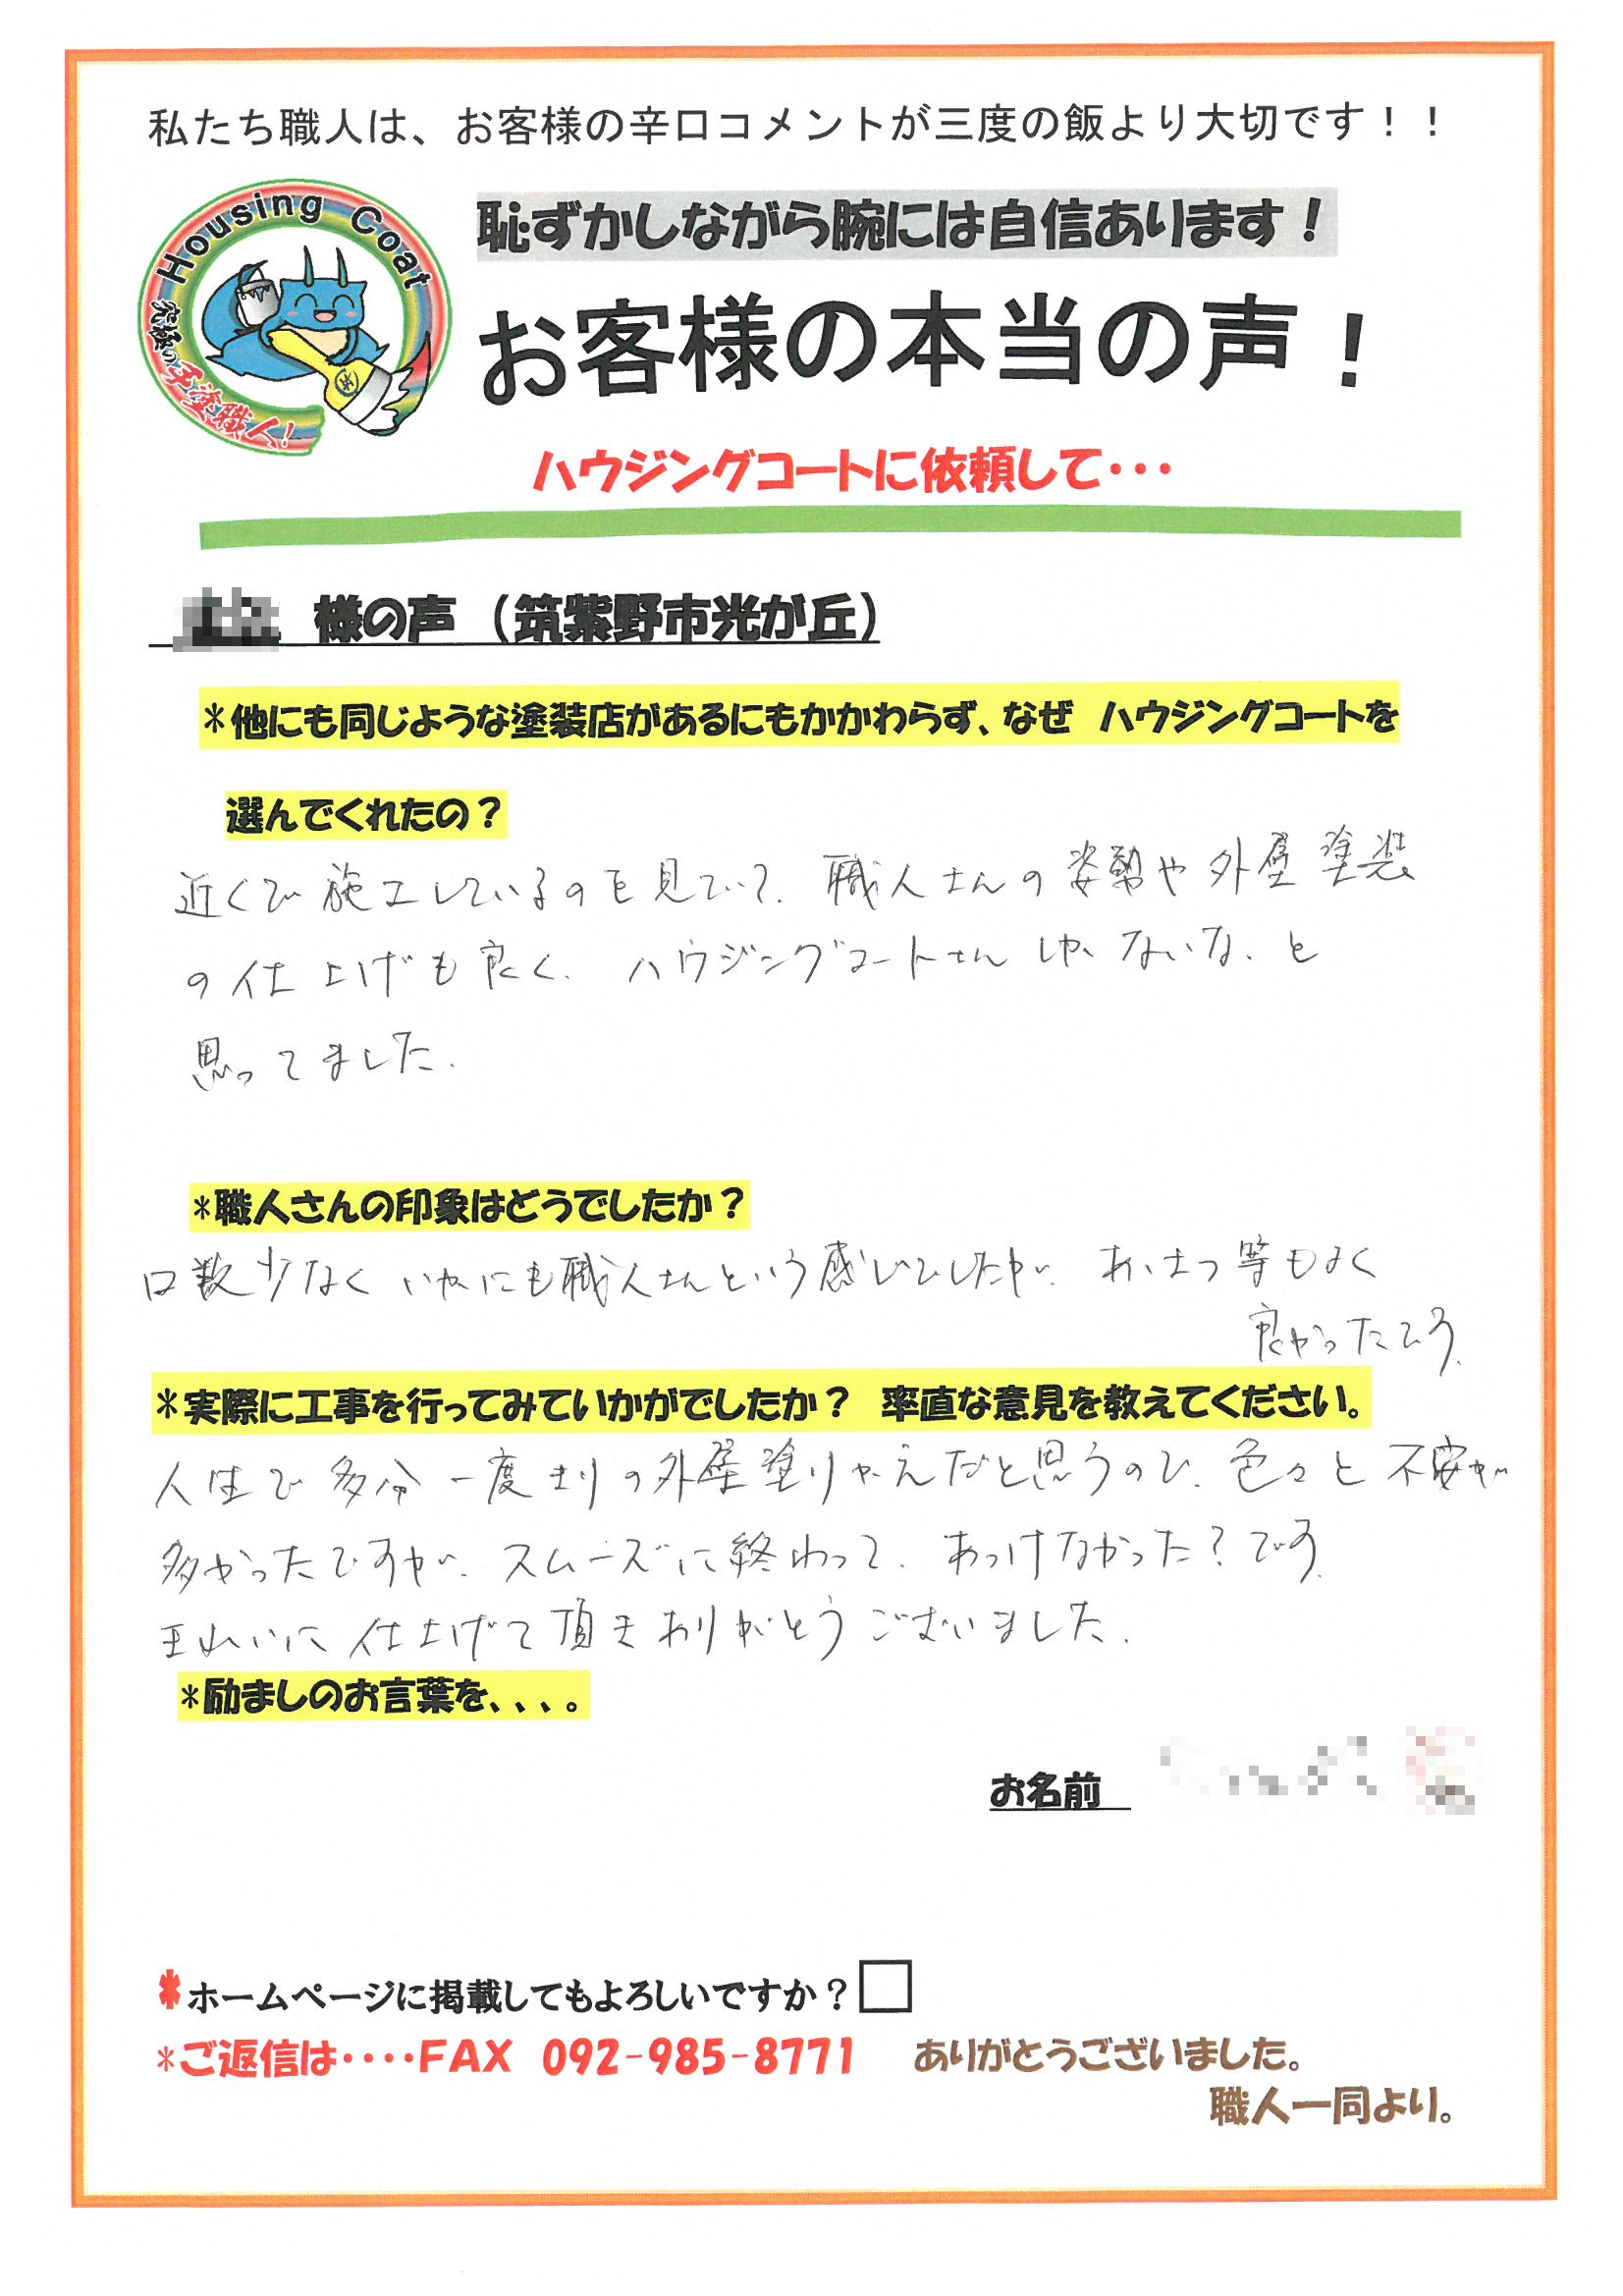 私たち職人は、お客様の辛口コメントが三度の飯より大切です！！
Housing Coat
究極の手塗職人!
恥ずかしながら腕には自信あります！
お客様の本当の声！
ハウジングコートに依頼して・・・
様の声（筑紫野市光が丘）
＊他にも同じような塗装店があるにもかかわらず、なぜ　ハウジングコートを
選んでくれたの？
近くで施工しているのを見ていて、職人さんの姿勢や外壁塗装
の仕上げも良く、ハウジングコートさんしかないな、と
思ってました。
＊職人さんの印象はどうでしたか？
口数少なくいかにも職人さんという感じでしたが、あいさつ等もよく
良かったです。
＊実際に工事を行ってみていかがでしたか？　率直な意見を教えてください。
人生で多分一度きりの外壁塗りかえだと思うので、色々と不安が
多かったですが、スムーズに終わって、あっけなかった？です。
キレいに仕上げて頂きありがとうございました。
＊励ましのお言葉を、、、、。
お名前
＊ホームページに掲載してもよろしいですか？
＊ご返信は・・・・FAX　092-985-8771　ありがとうございました。
職人一同より。